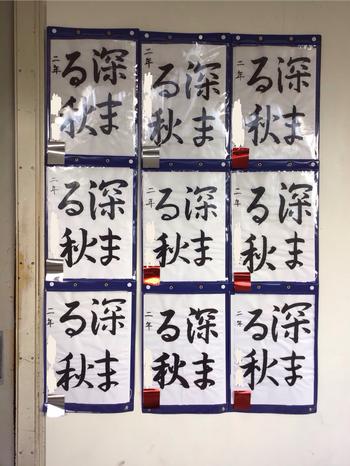 深ま
る秋
二年
深ま
る秋
二年
深ま
る秋
二年
深ま
る秋
二年
深ま
る秋
二年
深ま
る秋
二年
深ま
る秋
二年
深ま
る秋
二年
深ま
る秋
二年